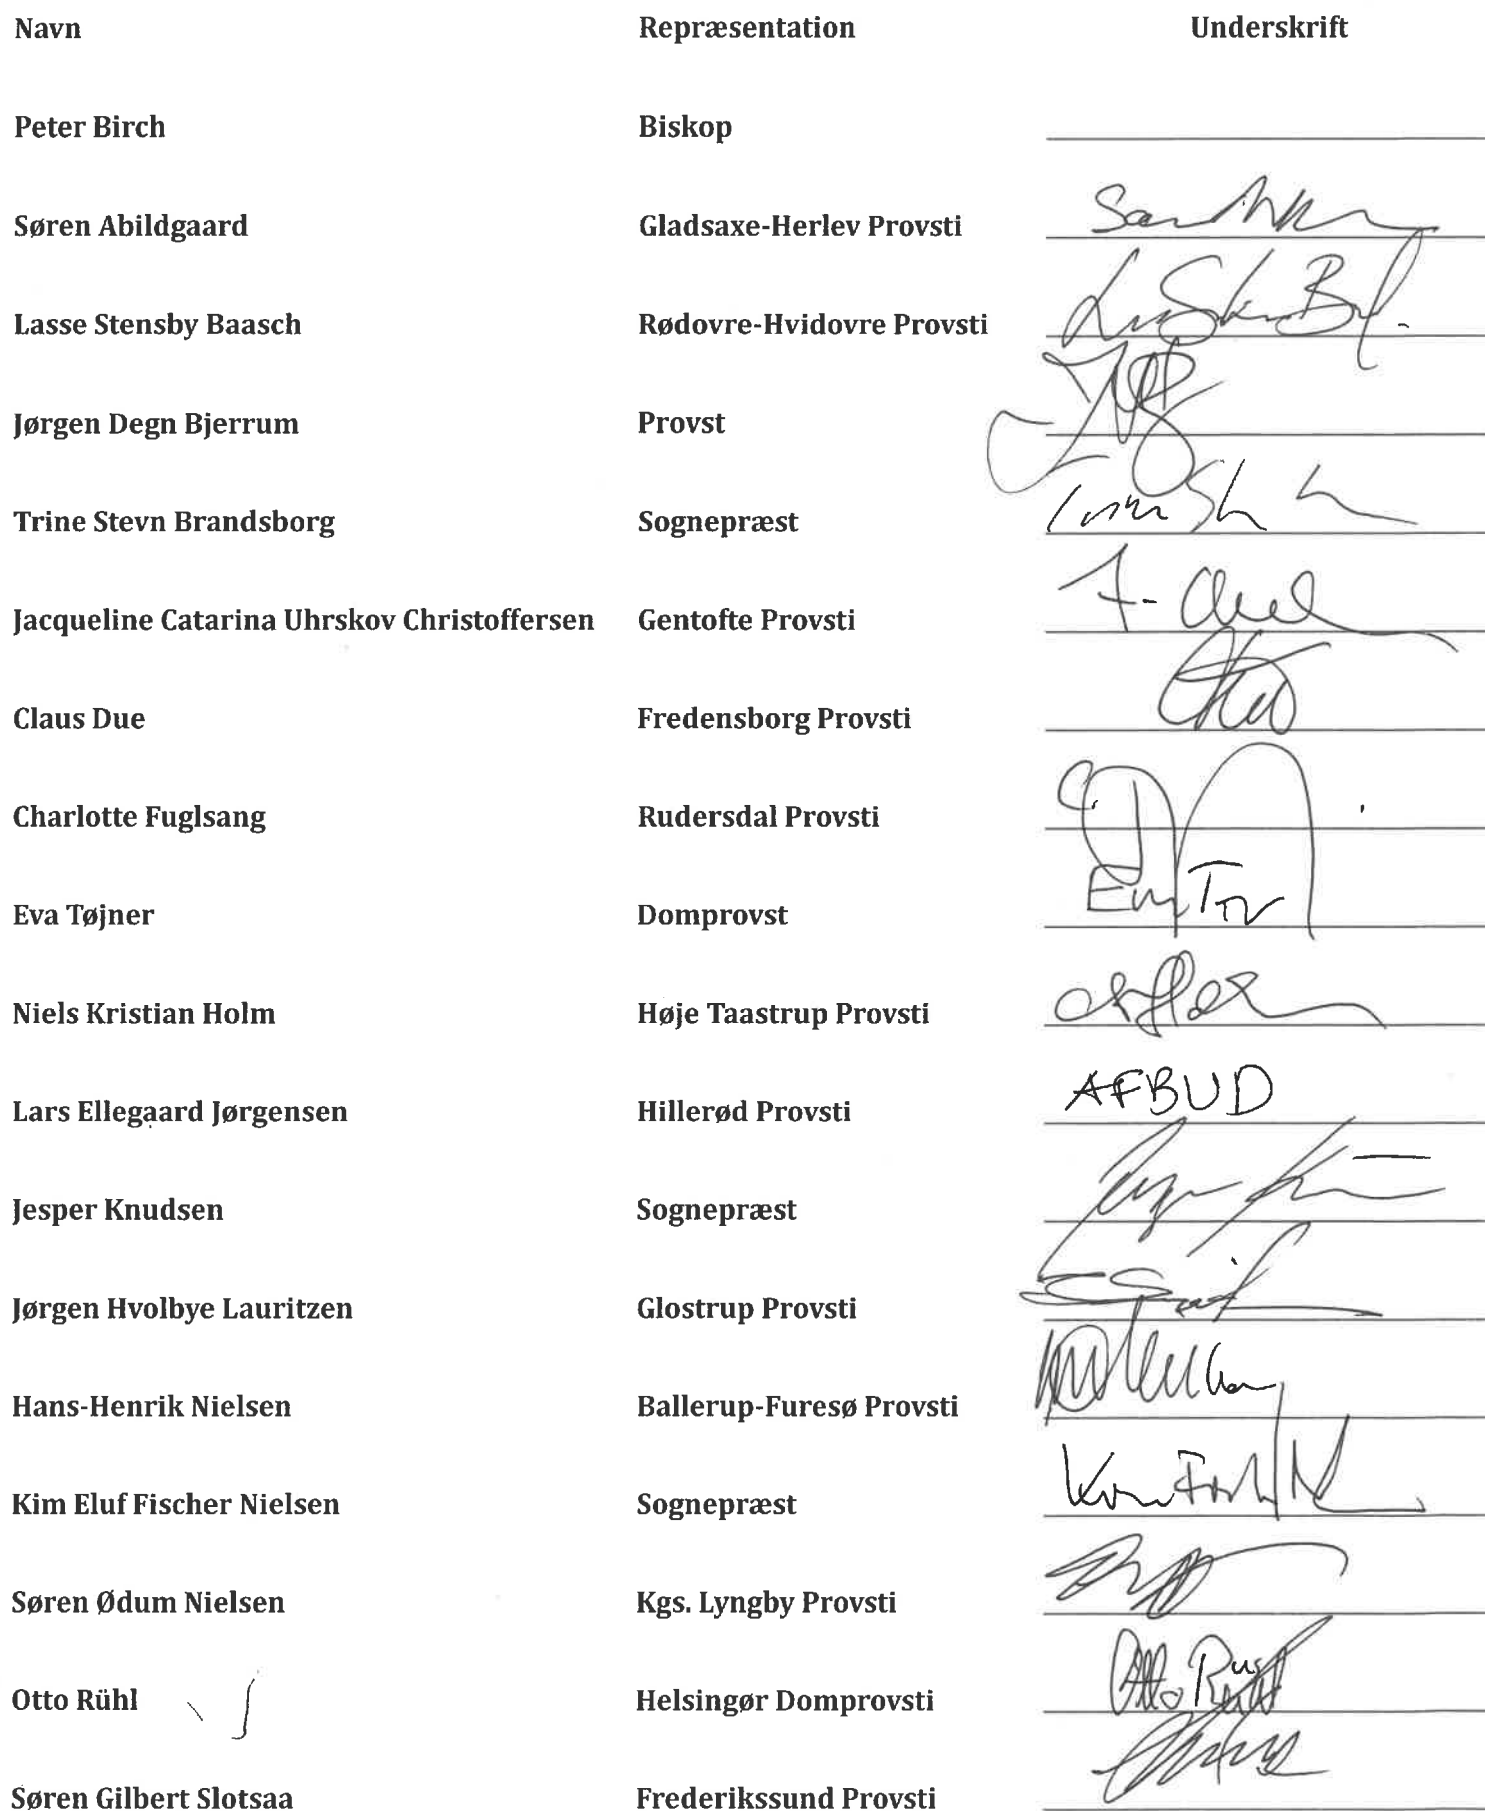 Navn Repræsentation Underskrift
Peter Birch Biskop
Søren Abildgaard Gladsaxe-Herlev Provsti
Lasse Stensby Baasch Rødovre-Hvidovre Provsti
Jørgen Degn Bjerrum Provst
Trine Stevn Brandsborg Sognepræst
Jacqueline Catarina Uhrskov Christoffersen Gentofte Provsti
Claus Due Fredensborg Provsti
Charlotte Fuglsang Rudersdal Provsti
Eva Tøjner Domprovst
Niels Kristian Holm Høje Taastrup Provsti
Lars Ellegaard Jørgensen Hillerød Provsti AFBUD
Jesper Knudsen Sognepræst
Jørgen Hvolbye Lauritzen Glostrup Provsti
Hans-Henrik Nielsen Ballerup-Furesø Provsti
Kim Eluf Fischer Nielsen Sognepræst
Søren Ødum Nielsen Kgs. Lyngby Provsti
Otto Rühl Helsingør Domprovsti Otto Rühl
Søren Gilbert Slotsaa Frederikssund Provsti